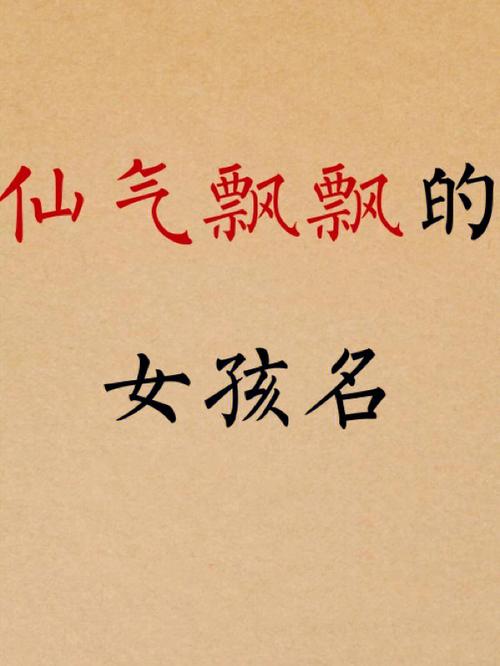 仙气飘飘的
女孩名